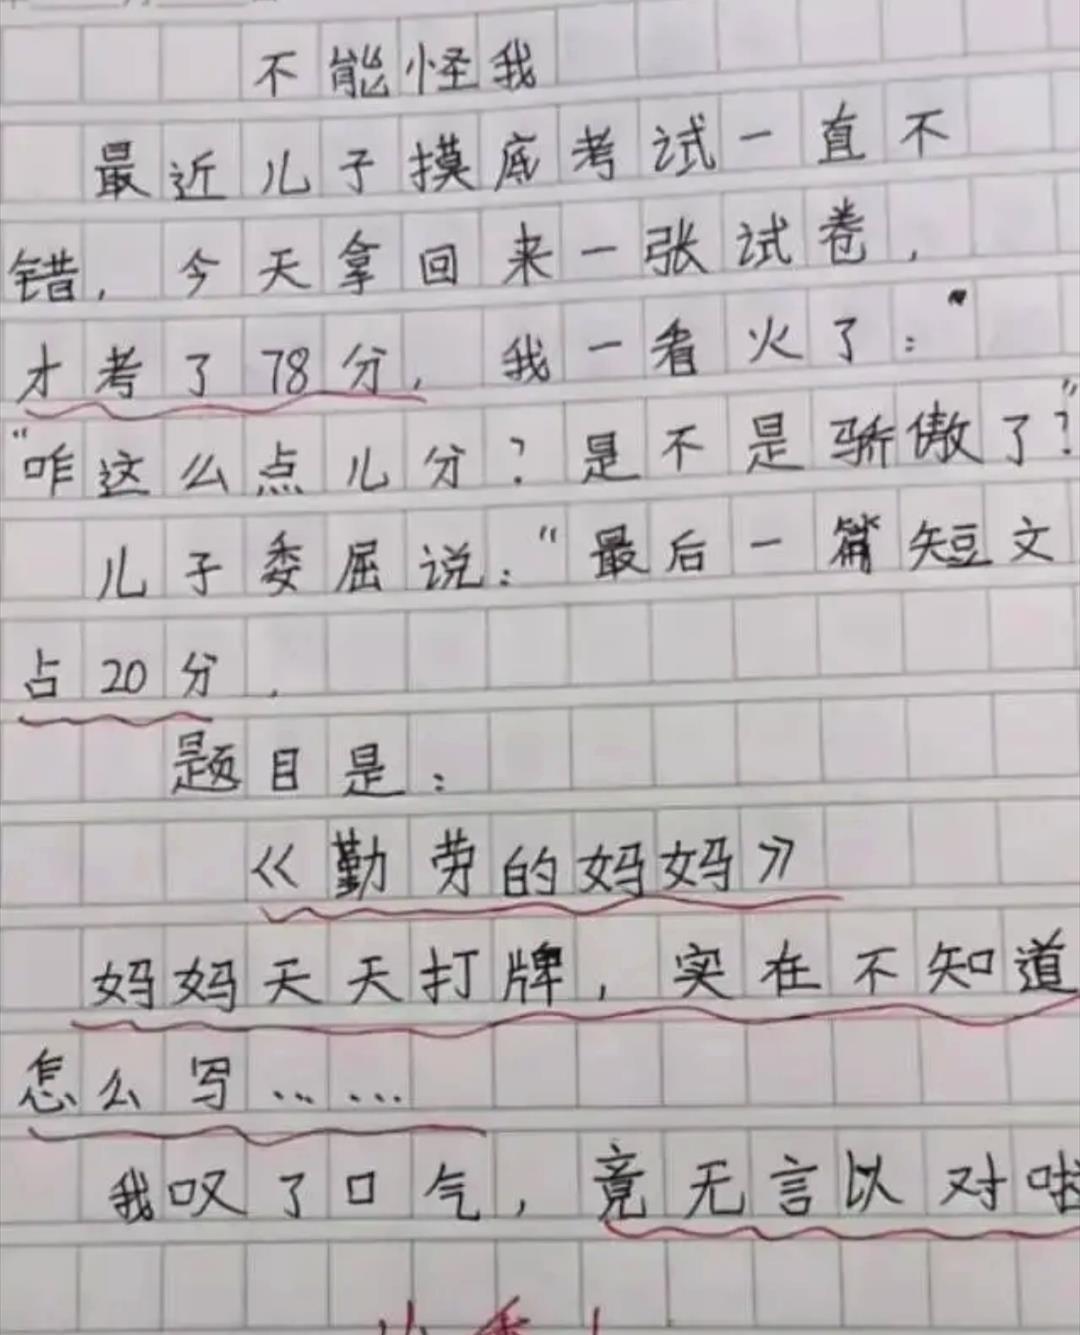 不能怪我
最近儿子摸底考试一直不
错,今天拿回来一张试卷,
才考了78分,我一看火了:"
"咋这么点儿分?是不是骄傲了?"
儿子委屈说:"最后一篇短文
占20分,
题目是:
《勤劳的妈妈》
妈妈天天打牌,实在不知道
怎么写……
我叹了口气,竟无言以对啦